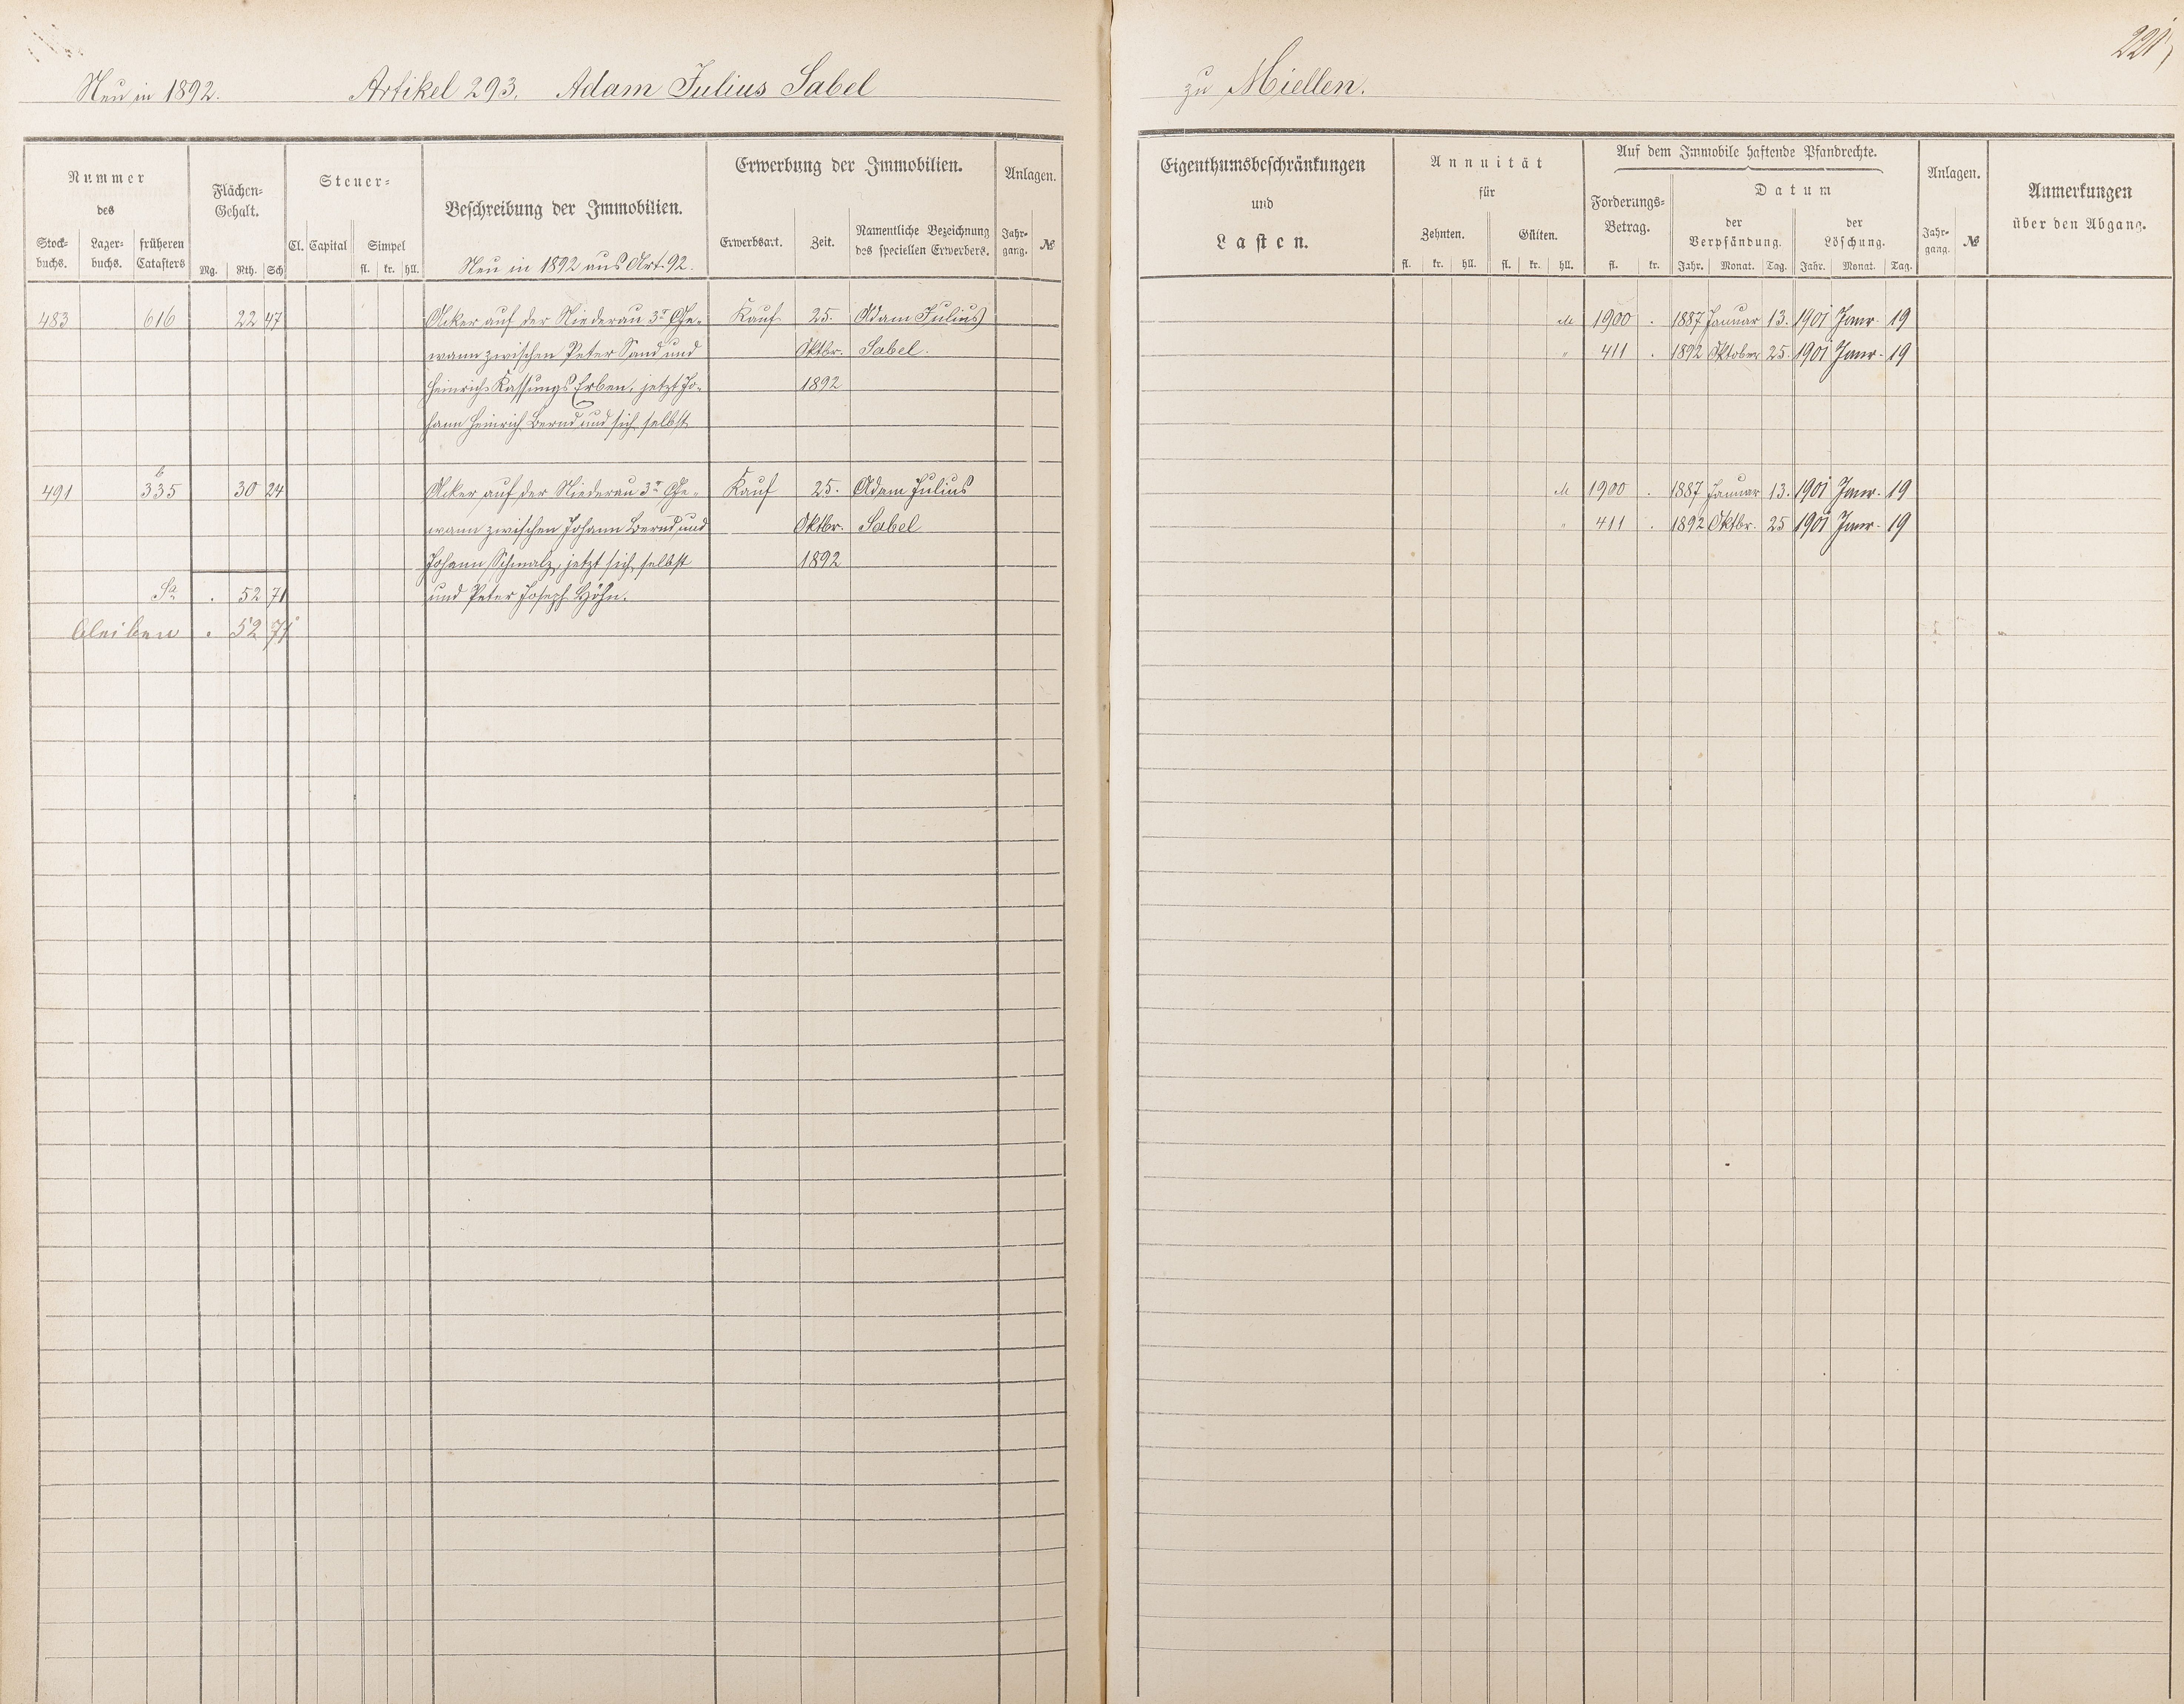 221
Neu in 1892. Artikel 293. Adam Julius Sabel zu Miellen.
Nummer des
Stockbuchs. Lagerbuchs. früheren Catasters
Flächen-Gehalt.
Mg. Rth. Sch
Steuer-
Cl. Capital Simpel
fl. kr. hll.
Beschreibung der Immobilien.
Neu in 1892 aus Art. 92.
Erwerbung der Immobilien.
Erwerbsart. Zeit. Namentliche Bezeichnung des speciellen Erwerbers.
Anlagen.
Jahr-gang. №
Eigenthumsbeschränkungen
und
Lasten.
Annuität
für
Zehnten. Gülten.
fl. kr. hll. fl. kr. hll.
Auf dem Immobile haftende Pfandrechte.
Forderungs-Betrag.
fl. kr.
Datum
der Verpfändung. der Löschung.
Jahr. Monat. Tag. Jahr. Monat. Tag.
Anlagen.
Jahr-gang. №
Anmerkungen
über den Abgang.
483 616 22 47 Acker auf der Niederau 3r Ge- Kauf 25. Adam Julius M 1900 . 1887 Januar 13. 1901 Janr. 19
wann zwischen Peter Sand und Oktbr. Sabel. " 411 . 1892 Oktober 25. 1901 Janr. 19
Heinrich Kassungs Erben, jetzt Jo- 1892
hann Heinrich Bernd und sich selbst
491 335 b 30 24 Acker auf der Niederau 3r Ge- Kauf 25. Adam Julius M 1900 . 1887 Januar 13. 1901 Janr. 19
wann zwischen Johann Bernd und Oktbr. Sabel " 411 . 1892 Oktbr. 25 1901 Janr. 19
Johann Schmalz, jetzt sich selbst 1892
Sa . 52 71 und Peter Joseph Höhn.
bleiben . 52 71